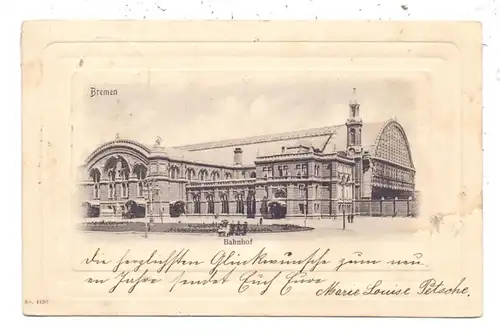 Bremen
Bahnhof
die herzlichsten Glückwünsche zum neu-
en Jahre sendet Euch Eure
Marie Louise Petsche.
No. 4120